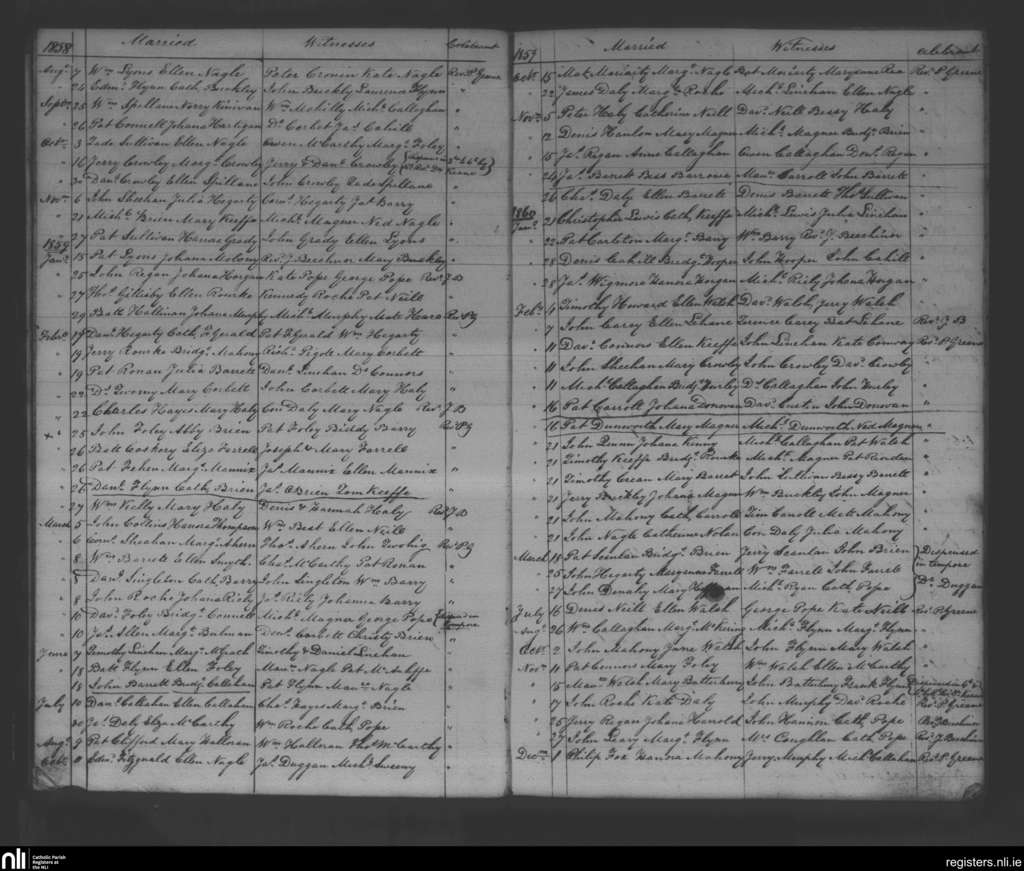 1858 Married Witnesses Celebrant
Augt 7 Wm Lyons Ellen Nagle Peter Cronin Kate Nagle Revd P. Greene
" 24 Edmd Flynn Cath Buckley John Buckley Laurence Flynn "
Septr 25 Wm Spillane Norry Kinivan Wm Michl Callaghan "
" 26 Pat Connell Johana Hartigan Dl Corbet Jas Cahill "
Octr 3 Zade Sullivan Ellen Nagle Owen McCarthy Margt Foley
" 16 Jerry Crowley Margt Crowley Jerry & Danl Crowley
" 30 Danl Crowley Ellen Spillane John Crowley Zade Spillane "
Novr 6 John Sheehan Julia Hegarty Corns Hegarty Pat Barry "
" 21 Michl Brien Mary Keeffe Michl Magner Ned Nagle "
" 27 Pat Sullivan Hanna Grady John Grady Ellen Lyons "
1859
Jany 15 Pat Lyons Johana Molony Revd J. Beechinor Mary Buckley "
" 25 John Regan Johana Horgan Kate Pope George Pope Revd J B
" 27 Thos Ellen Rourke Kennedy Roche Pat Neill "
" 29 Batt Hallinan Johana Murphy Michl Murphy Matt Revd PG
Feby 17 Danl Hegarty Cath FzGerald Pat FzGerald Wm Hegarty "
" 19 Jerry Rourke Bridgt Mahony Richd Pigott Mary Corbett "
" 19 Pat Ronan Julia Barrett Danl Linehan Dl Connors "
" 22 Dl Twomy Mary Corbett John Corbett Mary Haly "
" 22 Charles Hayes Mary Haly Con Daly Mary Nagle Revd J B
" 25 John Foley Abby Brien Pat Foley Biddy Barry Rev PG
" 26 Batt Coskery Eliza Farrell Joseph & Mary Farrell "
" 26 Pat Margt Mannix Jas Mannix Ellen Mannix "
" 26 Danl Flynn Cath Brien Jas OBrien Tom Keeffe "
" 27 Wm Kielly Mary Haly Denis & Hannah Haly Rev J B
March 5 John Collins Hanora Thompson Wm Best Ellen Neill "
" 6 Corns Sheahan Margt Ahern Thos Ahern John Twohig Revd PG
" 8 Wm Barrett Ellen Smyth Chas McCarthy Pat Ronan "
" 8 Danl Singleton Cath Barry John Singleton Wm Barry "
" 8 John Roche Johana Riely Jas Riely Johanna Barry "
" 10 Davd Foley Bridgt Connell Michl Magner George Pope
" 10 Jas Allen Margt Bulman Christy Brien "
June 7 Timothy Linehan Margt McGrath Timothy & Daniel Linehan "
" 18 Batt Flynn Ellen Foley Maurce Nagle Pat McAuliffe "
" 18 John Barrett Bridgt Callahan Pat Flynn Maurce Nagle "
July 10 Danl Callahan Ellen Callahan Chas Hayes Margt Brien "
" 30 Jas Daly Eliza McCarthy Wm Roche Cath Pope "
Augt 9 Pat Clifford Mary Halloran Wm Halloran Thos McCarthy "
Octr 11 Edmd Fitzgerald Ellen Nagle Jas Duggan Michl Sweeny "
1859 Married Witnesses Celebrant
Octr 15 Mat Moriarty Margt Nagle Bat Moriarty Maryanne Rea Revd P. Greene
" 22 James Daly Margt Roche Michl Linehan Ellen Nagle "
Novr 5 Peter Healy Catherine Neill Davd Neill Bessy Healy "
" 12 Denis Hanlon Mary Magner Michl Magner Bridgt Brien "
" 15 Jas Regan Anne Callaghan Owen Callaghan Donl Regan "
" 24 Jas Barrett Bess Barrow Maurce Carroll John Barrett "
" 26 Chas Daly Ellen Barrett Denis Barrett Thos Sullivan "
1860
Jany 21 Christopher Lewis Cath Keeffe Michl Lewis Julia Linehan "
" 22 Pat Carleton Margt Barry Wm Barry Revd J. Beechinor "
" 28 Denis Cahill Bridgt Hooper John Hooper John Cahill "
" 28 Jas Wigmore Hanora Horgan Michl Riely Johana Horgan "
Feby 4 Timothy Howard Ellen Walsh Davd Walsh Jerry Walsh "
" 7 John Carey Ellen Lehane Terence Carey Bat Lehane Revd J B
" 11 Davd Connors Ellen Keeffe John Linehan Kate Conway Revd P. Greene
" 11 John Sheehan Mary Crowley John Crowley Davd Crowley "
" 11 Michl Callaghan Bridgt Hurley Dl Callaghan John Hurley "
" 16 Pat Carroll Johana Donovan John Donovan "
" 16 Pat Dunworth Mary Magner Michl Dunworth Ned Magner "
" 21 John Quinn Johana Michl Callaghan Pat Walsh "
" 21 Timothy Keeffe Bridgt Rourke Michl Magner Pat "
" 21 Timothy Crean Mary Barrett John Sullivan Bessy Barrett "
" 21 Jerry Buckley Johana Magner Wm Buckley John Magner "
" 21 John Mahony Cath Carroll Tim Canole Matt Mahony "
" 21 John Nagle Catherine Nolan Con Daly Julia Mahony "
March 18 Pat Scanlan Bridgt Brien Jerry Scanlan John Brien Dispensed
" 25 John Hegarty Maryanne Farrell Wm Farrell John Farrell in tempore
" 27 John Denahy Mary Michl Ryan Cath Pope Dr Duggan
July 16 Denis Neill Ellen Walsh George Pope Kate Neill Revd P. Greene
Augt 26 Wm Callaghan Margt Michl Flynn Margt Flynn "
Octr 2 John Mahony June Walsh John Flynn Mary Walsh "
Novr 11 Pat Connors Mary Foley Wm Walsh Ellen McCarthy "
" 15 Maurce Walsh Mary Battenbury John Battenbury Frank Flynn
" 17 John Roche Kate Daly John Murphy Davd Roche Revd P. Greene
" 25 Jerry Regan Johana Harrold John Hannon Cath Pope Rev J. Beechinor
" 27 John Leary Margt Flynn Mrs Coughlan Cath Pope Revd J. Beechinor
Decr 1 Philip Fox Hanora Mahony Jerry Murphy Michl Callahan Revd P. Greene
nli Catholic Parish
Registers at
the NLI
registers.nli.ie